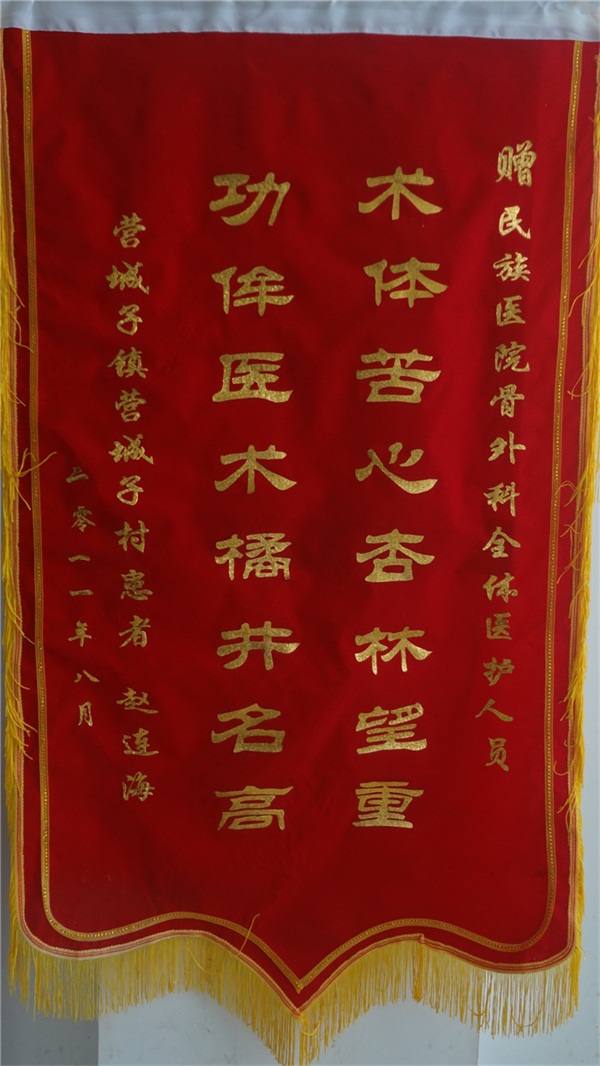 赠民族医院骨外科全体医护人员
术体苦心杏林望重
功侔医术橘井名高
营城子镇营城子村患者 赵连海
二零一一年八月